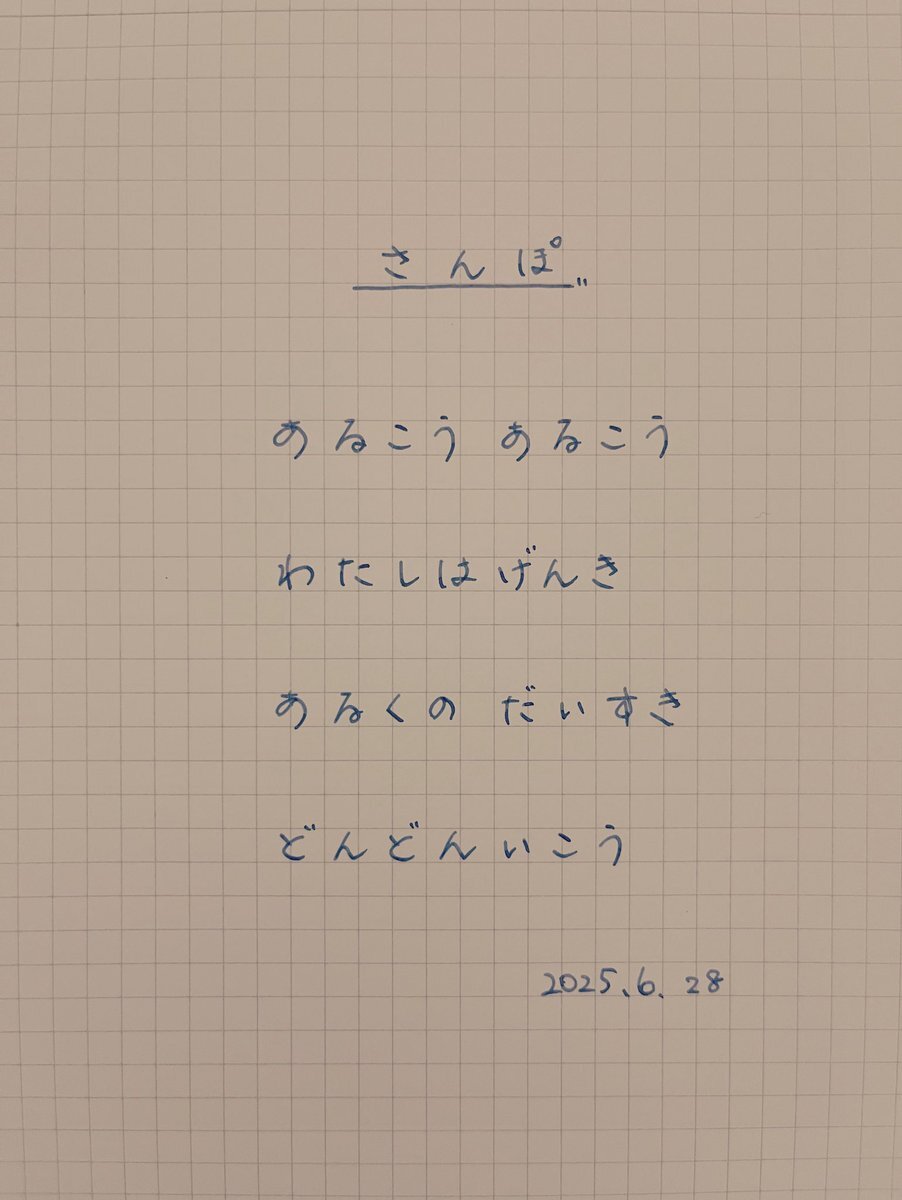 さんぽ
あるこう あるこう
わたしはげんき
あるくの だいすき
どんどんいこう
2025.6.28